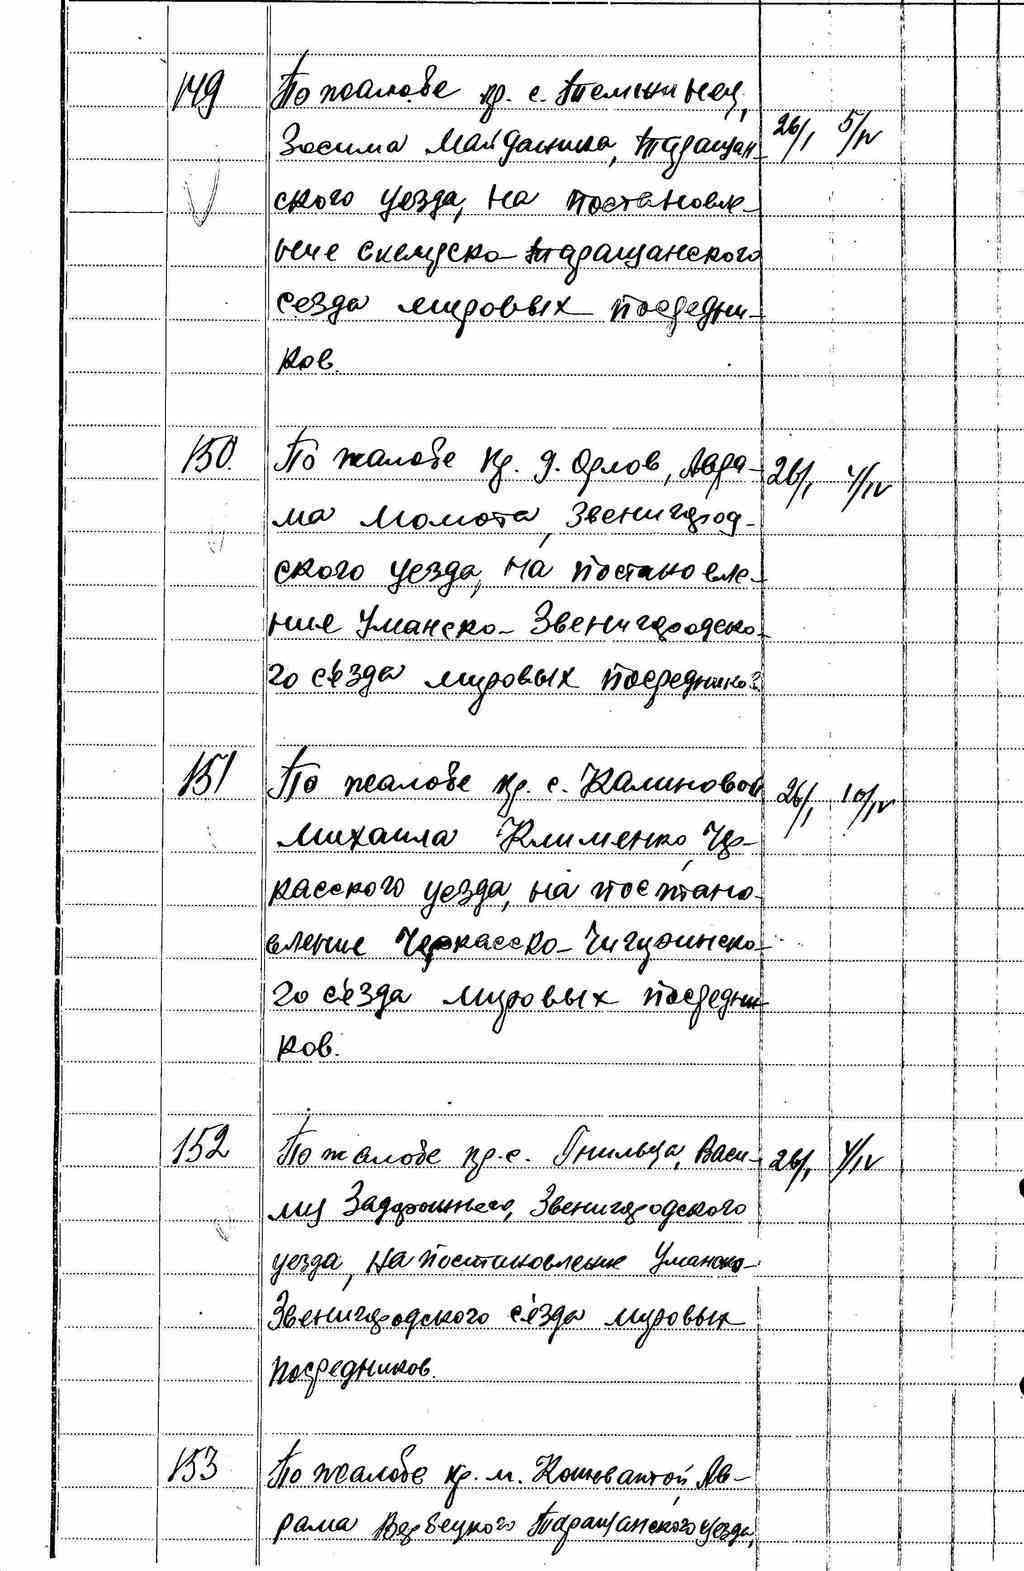 149 По жалобе кр. с.
Зосима Майданика, Таращан-
26/I 5/IV
ского уезда, на постановле-
ние Сквирско-Таращанского
сезда мировых посредни-
ков.
150. По жалобе кр. д. Орлов, Авра- 26/I 4/IV
ма Момота, Звенигород-
ского уезда, на постановле-
ние Уманско-Звенигородско-
го с'езда мировых посредников
151 По жалобе кр. с. Калиновой 26/I 10/IV
Михаила Клименко, Чер-
касского уезда, на постано-
вление Черкасско-Чигиринско-
го с'езда мировых посредни-
ков.
152 По жалобе кр. с. Гнильца, Васи- 26/I 4/IV
лия Задорожнего, Звенигородского
уезда, на постановление Уманско-
Звенигородского с'езда мировых
посредников.
153 По жалобе кр. м. Кошеватой, Ав-
рама Вербецкого Таращанского уезда,